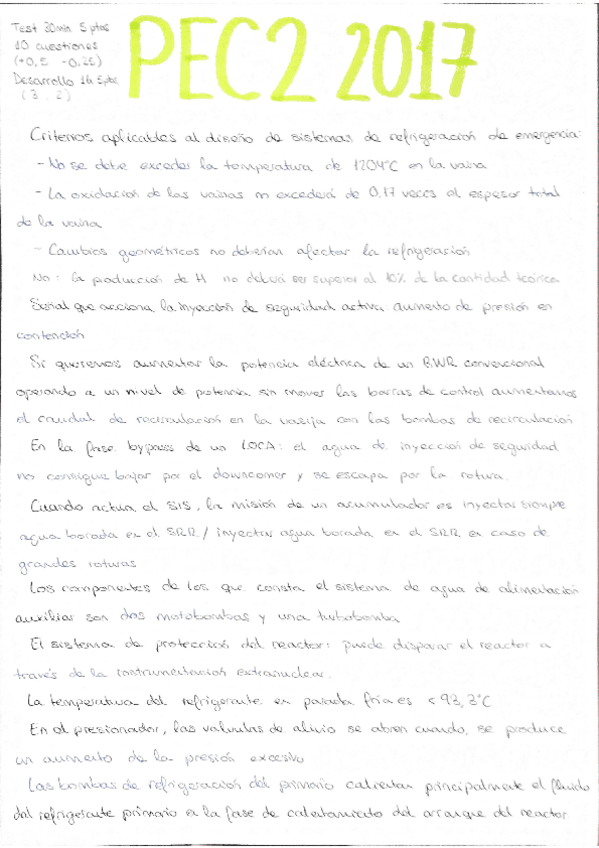 Test 30min 5 ptos
10 cuestiones
(+0,5 -0,25)
Desarrollo 1h 5ptos
(3, 2)
PEC2 2017
Criterios aplicables al diseño de sistemas de refrigeración de emergencia:
- No se debe exceder la temperatura de 1204°C en la vaina
- La oxidación de las vainas no excederá de 0,17 veces el espesor total
de la vaina
- Cambios geométricos no deberían afectar la refrigeración
No: la producción de H no deberá ser superior al 10% de la cantidad teórica
Señal que acciona la inyección de seguridad activa: aumento de presión en
contención
Si queremos aumentar la potencia eléctrica de un BWR convencional
operando a un nivel de potencia sin mover las barras de control aumentamos
el caudal de recirculación en la vasija con las bombas de recirculación
En la fase bypass de un LOCA: el agua de inyección de seguridad
no consigue bajar por el downcomer y se escapa por la rotura.
Cuando actua el SIS, la misión de un acumulador es inyectar siempre
agua borada en el SRR / inyectar agua borada en el SRR en caso de
grandes roturas
Los componentes de los que consta el sistema de agua de alimentación
auxiliar son dos motobombas y una turbobomba
El sistema de protección del reactor: puede disparar el reactor a
través de la instrumentación extranuclear.
La temperatura del refrigerante en parada fría es < 93,3°C
En el presionador, las valvulas de alivio se abren cuando, se produce
un aumento de la presión excesivo
Las bombas de refrigeración del primario calientan principalmente el fluido
del refrigerante primario en la fase de calentamiento del arranque del reactor.